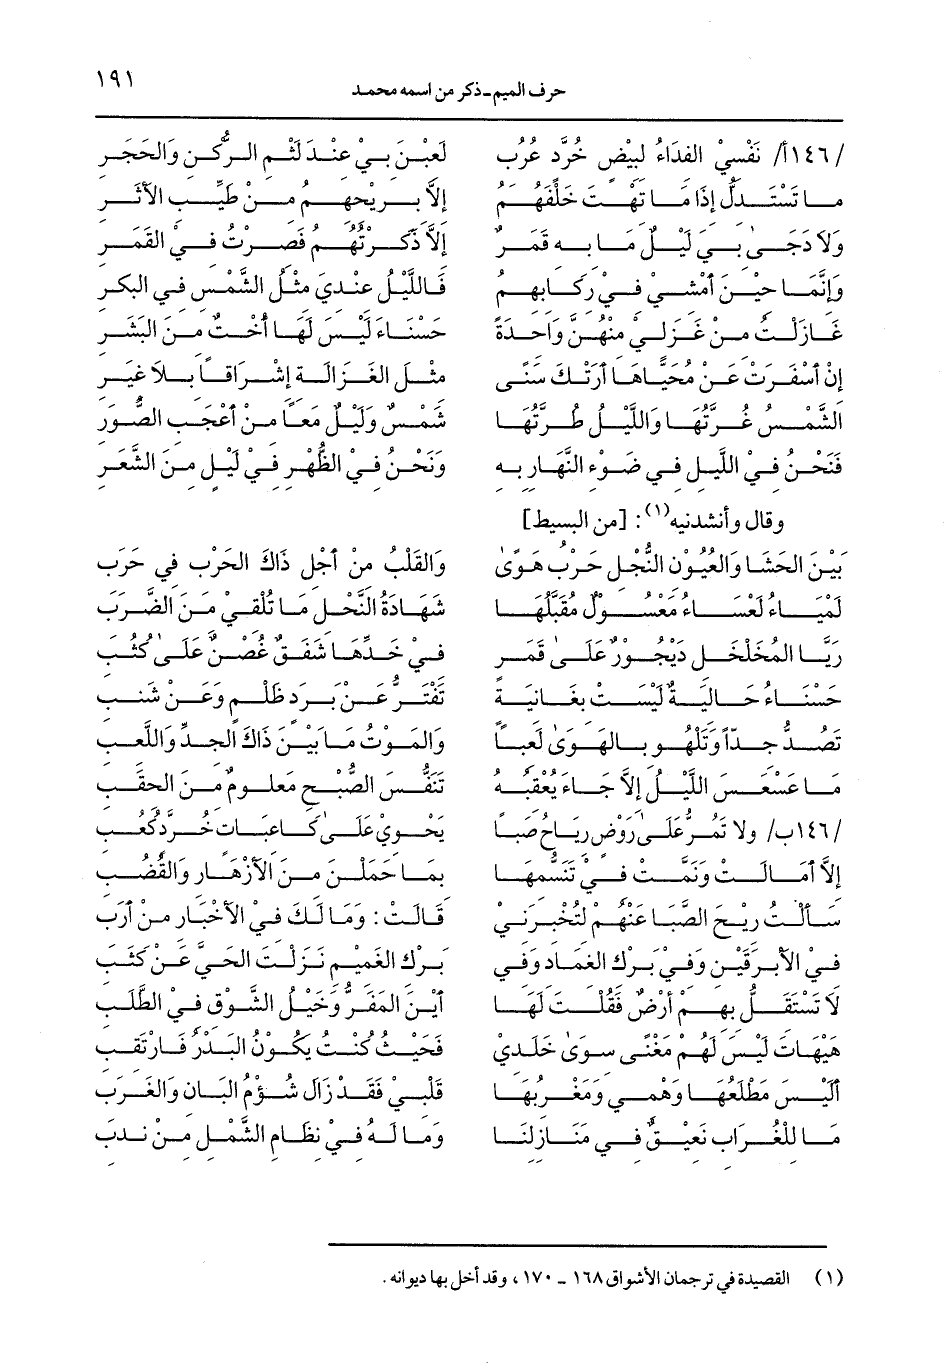 ١٩١
حرف الميم - ذكر من اسمه محمد
/١٤٦أ/ نَفْسِيْ الفِدَاءُ لِبِيْضٍ خُرَّدٍ عُرُبٍ لَعِبْنَ بِيْ عِنْدَ لَثْمِ الرُّكْنِ وَالحَجَرِ
مَا تَسْتَدِلُّ إِذَا مَا تِهْتَ خَلْفَهُمُ إِلاَّ بِرِيْحِهِمُ مِنْ طَيِّبِ الأَثَرِ
وَلاَ دَجَى بِيَ لَيْلٌ مَا بِهِ قَمَرٌ إِلاَّ ذَكَرْتُهُمُ فَصِرْتُ فِي القَمَرِ
وَإِنَّمَا حِيْنَ أُمْسِيْ فِيْ رِكَابِهِمُ فَاللَّيْلُ عِنْدِيَ مِثْلُ الشَّمْسِ فِي البُكَرِ
غَازَلْتُ مِنْ غَزَلِيْ مِنْهُنَّ وَاحِدَةً حَسْنَاءَ لَيْسَ لَهَا أُخْتٌ مِنَ البَشَرِ
إِنْ أَسْفَرَتْ عَنْ مُحَيَّاهَا أَرَتْكَ سَنًى مِثْلَ الغَزَالَةِ إِشْرَاقًا بِلاَ غِيَرِ
الشَّمْسُ غُرَّتُهَا وَاللَّيْلُ طُرَّتُهَا شَمْسٌ وَلَيْلٌ مَعًا مِنْ أَعْجَبِ الصُّوَرِ
فَنَحْنُ فِيْ اللَّيْلِ فِي ضَوْءِ النَّهَارِ بِهِ وَنَحْنُ فِيْ الظُّهْرِ فِيْ لَيْلٍ مِنَ الشَّعَرِ
وقال وأنشدنيه(١): [من البسيط]
بَيْنَ الحَشَا وَالعُيُوْنِ النُّجْلِ حَرْبُ هَوًى وَالقَلْبُ مِنْ أَجْلِ ذَاكَ الحَرْبِ فِي حَرَبِ
لَمْيَاءُ لَعْسَاءُ مَعْسُولٌ مُقَبَّلُهَا شَهَادَةُ النَّحْلِ مَا تُلْقِيْ مِنَ الضَّرَبِ
رَيَّا المُخَلْخَلِ دَيْجُورٌ عَلَى قَمَرٍ فِيْ خَدِّهَا شَفَقٌ غُصْنٌ عَلَى كُثُبِ
حَسْنَاءُ حَالِيَةٌ لَيْسَتْ بِغَانِيَةٍ تَفْتَرُّ عَنْ بَرَدٍ ظَلْمٍ وَعَنْ شَنَبِ
تَصُدُّ جِدّاً وَتَلْهُو بِالهَوَى لَعِباً وَالمَوْتُ مَا بَيْنَ ذَاكَ الجِدِّ وَاللَّعِبِ
مَا عَسْعَسَ اللَّيْلُ إِلاَّ جَاءَ يَعْقِبُهُ تَنَفُّسُ الصُّبْحِ مَعْلُومٌ مِنَ الحِقَبِ
/١٤٦ب/ وَلا تَمُرُّ عَلَى رَوْضٍ رِيَاحُ صَباً يَحْوِيْ عَلَى كَاعِبَاتٍ خُرَّدٍ كُعُبِ
إِلاَّ أَمَالَتْ وَنَمَّتْ فِيْ تَنَسُّمِهَا بِمَا حَمَلْنَ مِنَ الأَزْهَارِ وَالقُضُبِ
سَأَلْتُ رِيْحَ الصَّبَا عَنْهُمْ لِتُخْبِرَنِيْ قَالَتْ: وَمَا لَكَ فِيْ الأَخْبَارِ مِنْ أَرَبِ
فِي الأَبْرَقَيْنِ وَفِيْ بَرْكِ الغِمَادِ وَفِي بَرْكِ الغَمِيْمِ نَزَلْتُ الحَيَّ عَنْ كَثَبِ
لاَ تَسْتَقِلُّ بِهِمْ أَرْضٌ فَقُلْتُ لَهَا أَيْنَ المَفَرُّ وَخَيْلُ الشَّوْقِ فِيْ الطَّلَبِ
هَيْهَاتَ لَيْسَ لَهُمْ مَغْنًى سِوَى خَلَدِيْ فَحَيْثُ كُنْتُ يَكُوْنُ البَدْرُ فَارْتَقِبِ
أَلَيْسَ مَطْلَعُهَا وَهْمِي وَمَغْرِبُهَا قَلْبِيْ فَقَدْ زَالَ شُؤْمُ البَانِ وَالغَرَبِ
مَا لِلْغُرَابِ نَعِيْقٌ فِي مَنَازِلِنَا وَمَا لَهُ فِيْ نِظَامِ الشَّمْلِ مِنْ نَدَبِ
(١) القصيدة في ترجمان الأشواق ١٦٨ - ١٧٠، وقد أخل بها ديوانه.